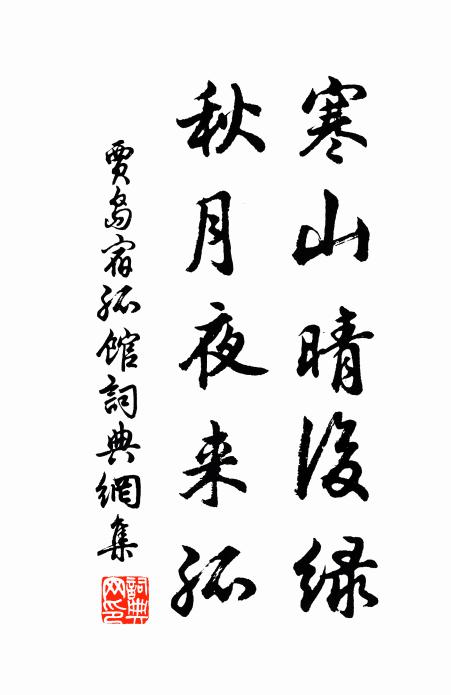 寒山晴後緑
秋月夜来孤
賈島宿孤館詞典網集
詞典網印